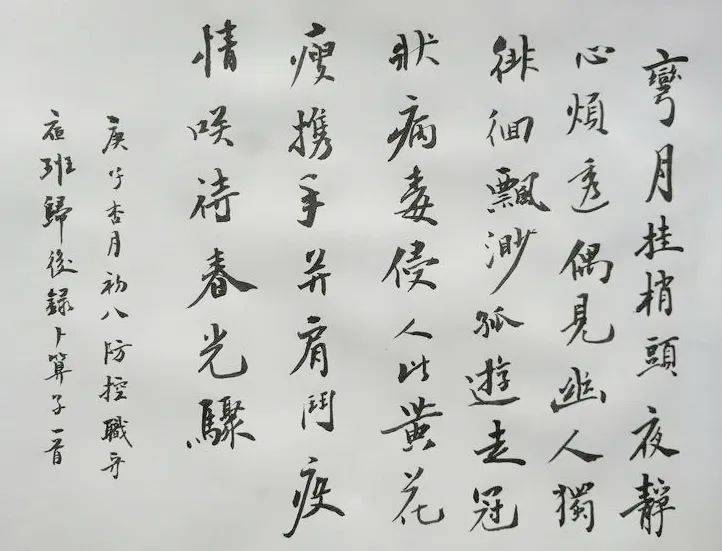 彎月挂梢頭夜靜
心煩透偶見幽人獨
徘徊飄渺孤遊走冠
狀病毒侵人比黄花
瘦携手并肩鬥疫
情咲待春光驟
庚子杏月初八防控職守
夜班歸後録卜算子一首